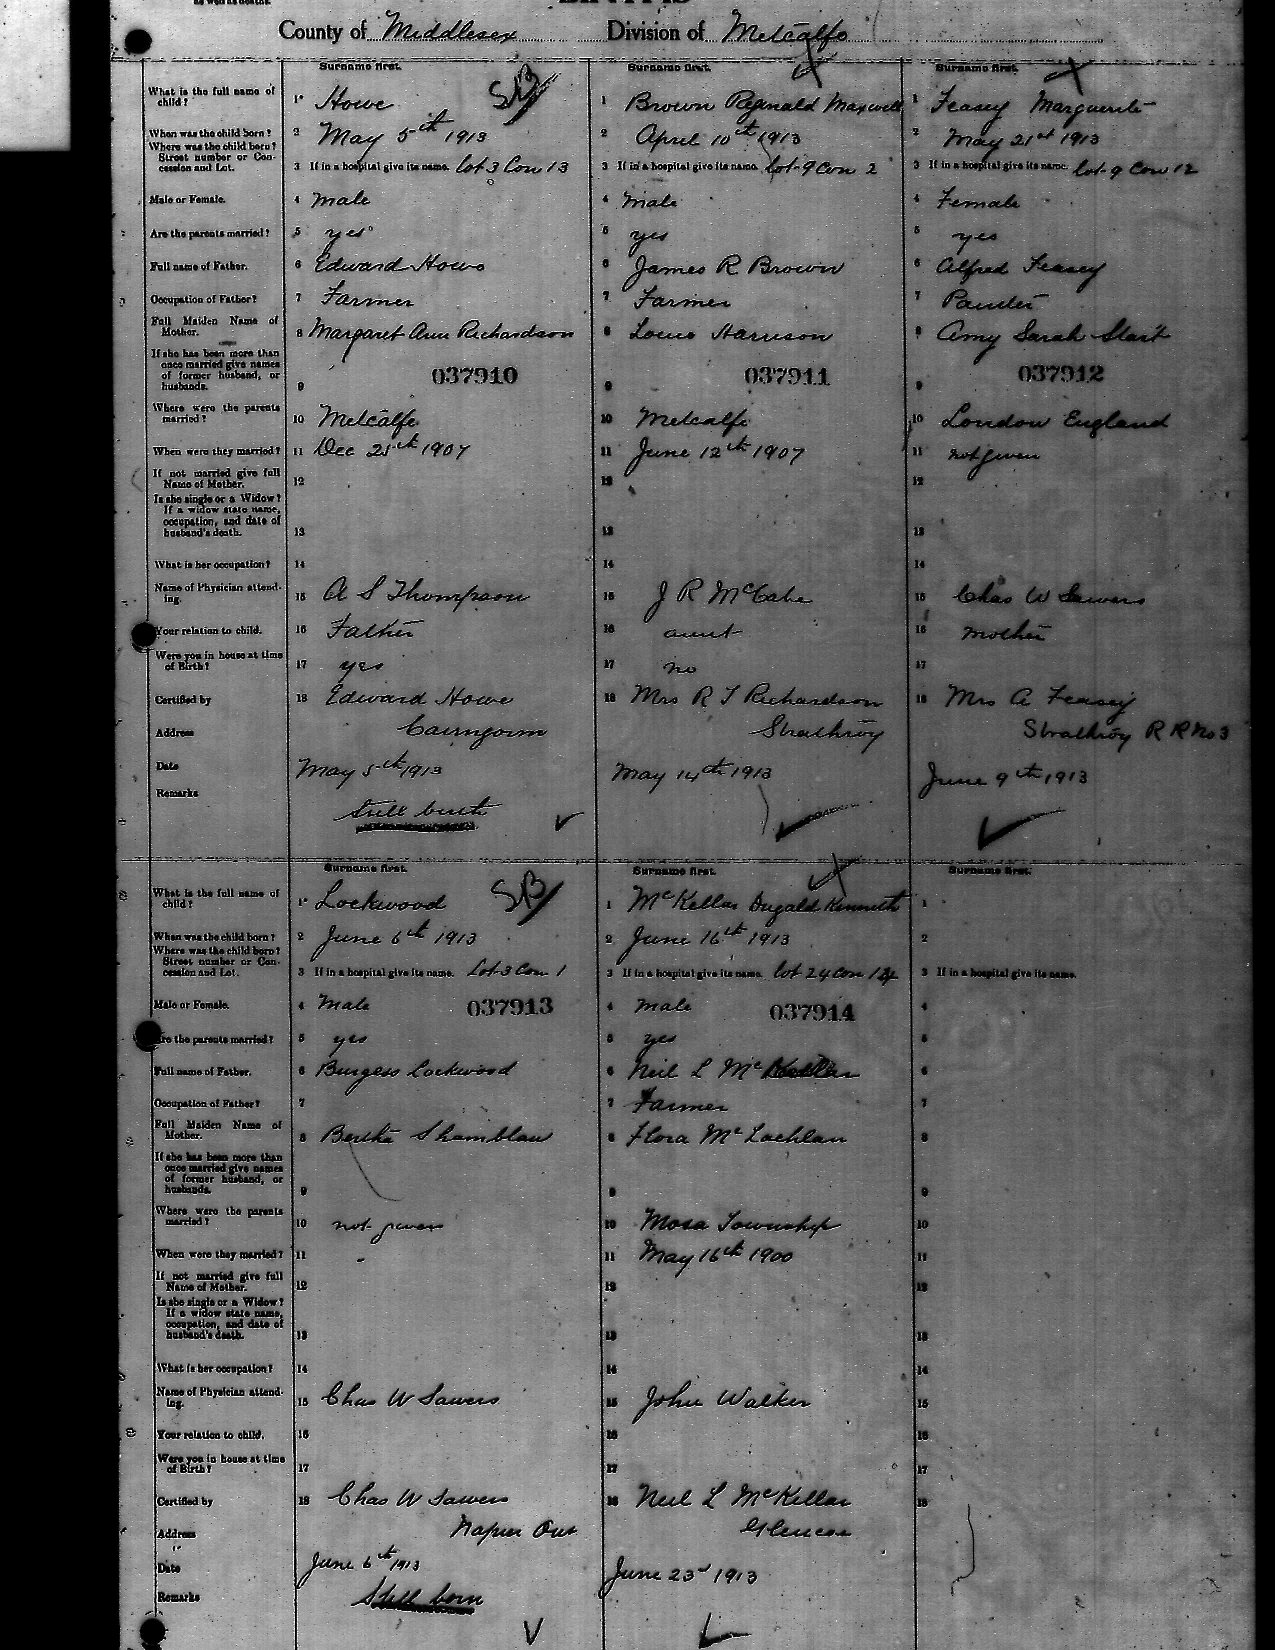 as well as deaths.
County of Middlesex Division of Metcalfe
Surname first. Surname first. Surname first.
What is the full name of child? 1 Howe SB 1 Brown Reginald Maxwell 1 Feasey Marguerite
When was the child born? 2 May 5th 1913 2 April 10th 1913 2 May 21st 1913
Where was the child born? Street number or Concession and Lot. 3 If in a hospital give its name. Lot 3 Con 13 3 If in a hospital give its name. Lot 9 Con 2 3 If in a hospital give its name. Lot 9 Con 12
Male or Female. 4 male 4 male 4 Female
Are the parents married? 5 yes 5 yes 5 yes
Full name of Father. 6 Edward Howe 6 James R Brown 6 Alfred Feasey
Occupation of Father? 7 Farmer 7 Farmer 7
Full Maiden Name of Mother. 8 Margaret Ann Richardson 8 Harrison 8 Amy Sarah Start
If she has been more than once married give names of former husband, or husbands. 9 037910 9 037911 9 037912
Where were the parents married? 10 Metcalfe 10 Metcalfe 10 London England
When were they married? 11 Dec 25th 1907 11 June 12th 1907 11 not given
If not married give full Name of Mother. 12 12 12
Is she single or a Widow? If a widow state name, occupation, and date of husband's death. 13 13 13
What is her occupation? 14 14 14
Name of Physician attending. 15 A S Thompson 15 J R McCabe 15 Chas W Sawers
Your relation to child. 16 Father 16 aunt 16 mother
Were you in house at time of Birth? 17 yes 17 no 17
Certified by 18 Edward Howe 18 Mrs R T Richardson 18 Mrs A Feasey
Address Cairngorm Strathroy Strathroy R R No 3
Date May 5th 1913 May 14th 1913 June 9th 1913
Remarks Still birth
Surname first. Surname first. Surname first.
What is the full name of child? 1 Lockwood SB 1 McKellar Dugald Kenneth 1
When was the child born? 2 June 6th 1913 2 June 16th 1913 2
Where was the child born? Street number or Concession and Lot. 3 If in a hospital give its name. Lot 3 Con 1 3 If in a hospital give its name. Lot 24 Con 3 If in a hospital give its name.
Male or Female. 4 Male 037913 4 male 037914 4
Are the parents married? 5 yes 5 yes 5
Full name of Father. 6 Burgess Lockwood 6 Neil L McKellar 6
Occupation of Father? 7 7 Farmer 7
Full Maiden Name of Mother. 8 Bertha Shamblaw 8 Flora McLachlan 8
If she has been more than once married give names of former husband, or husbands. 9 9 9
Where were the parents married? 10 not given 10 Mosa Township 10
When were they married? 11 - 11 May 16th 1900 11
If not married give full Name of Mother. 12 12 12
Is she single or a Widow? If a widow state name, occupation, and date of husband's death. 13 13 13
What is her occupation? 14 14 14
Name of Physician attending. 15 Chas W Sawers 15 John Walker 15
Your relation to child. 16 16 16
Were you in house at time of Birth? 17 17 17
Certified by 18 Chas W Sawers 18 Neil L McKellar 18
Address Napier Ont Glencoe
Date June 6th 1913 June 23rd 1913
Remarks Still born